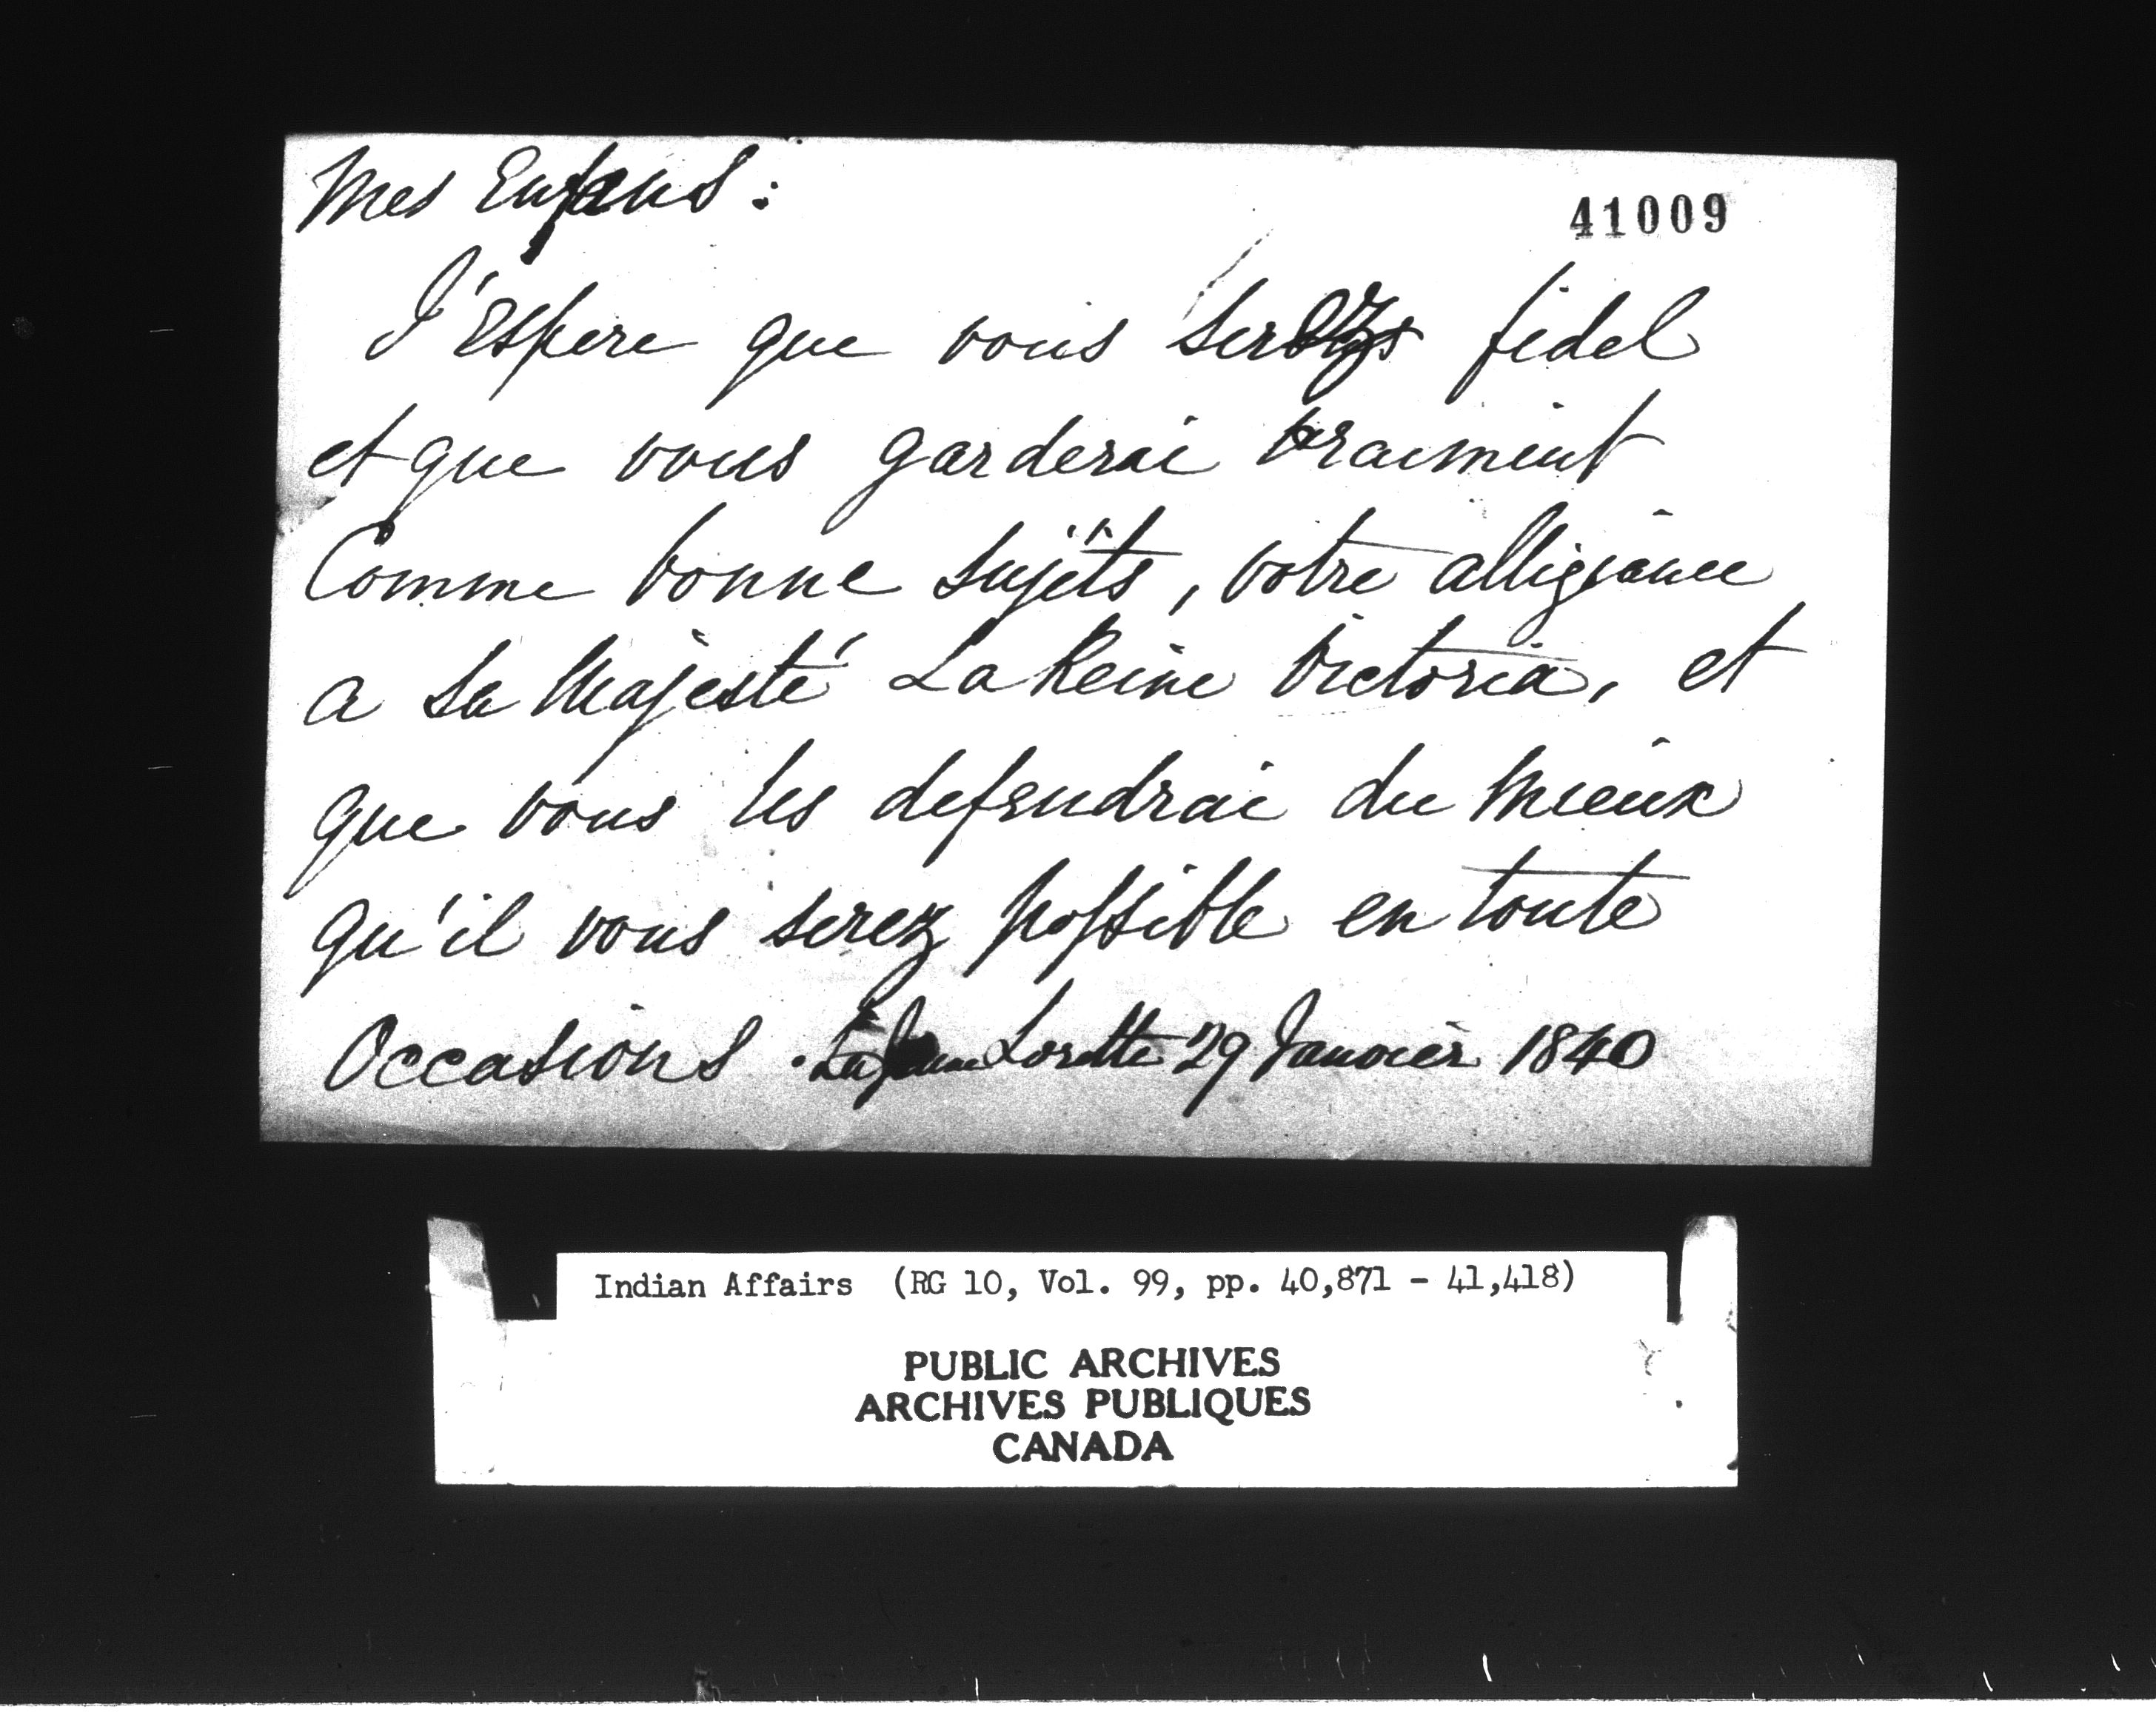 Mes Enfans :
41009
J'Espere que vous serez fidel
et que vous garderai vraiment
Comme bonne sujets, votre alligiance
a Sa Majesté La Reine Victoria, et
que vous les defendrai du mieux
qu'il vous serez possible en toute
Occasions . La Jeune Lorette 29 Janvier 1840
Indian Affairs (RG 10, Vol. 99, pp. 40,871 - 41,418)
PUBLIC ARCHIVES
ARCHIVES PUBLIQUES
CANADA